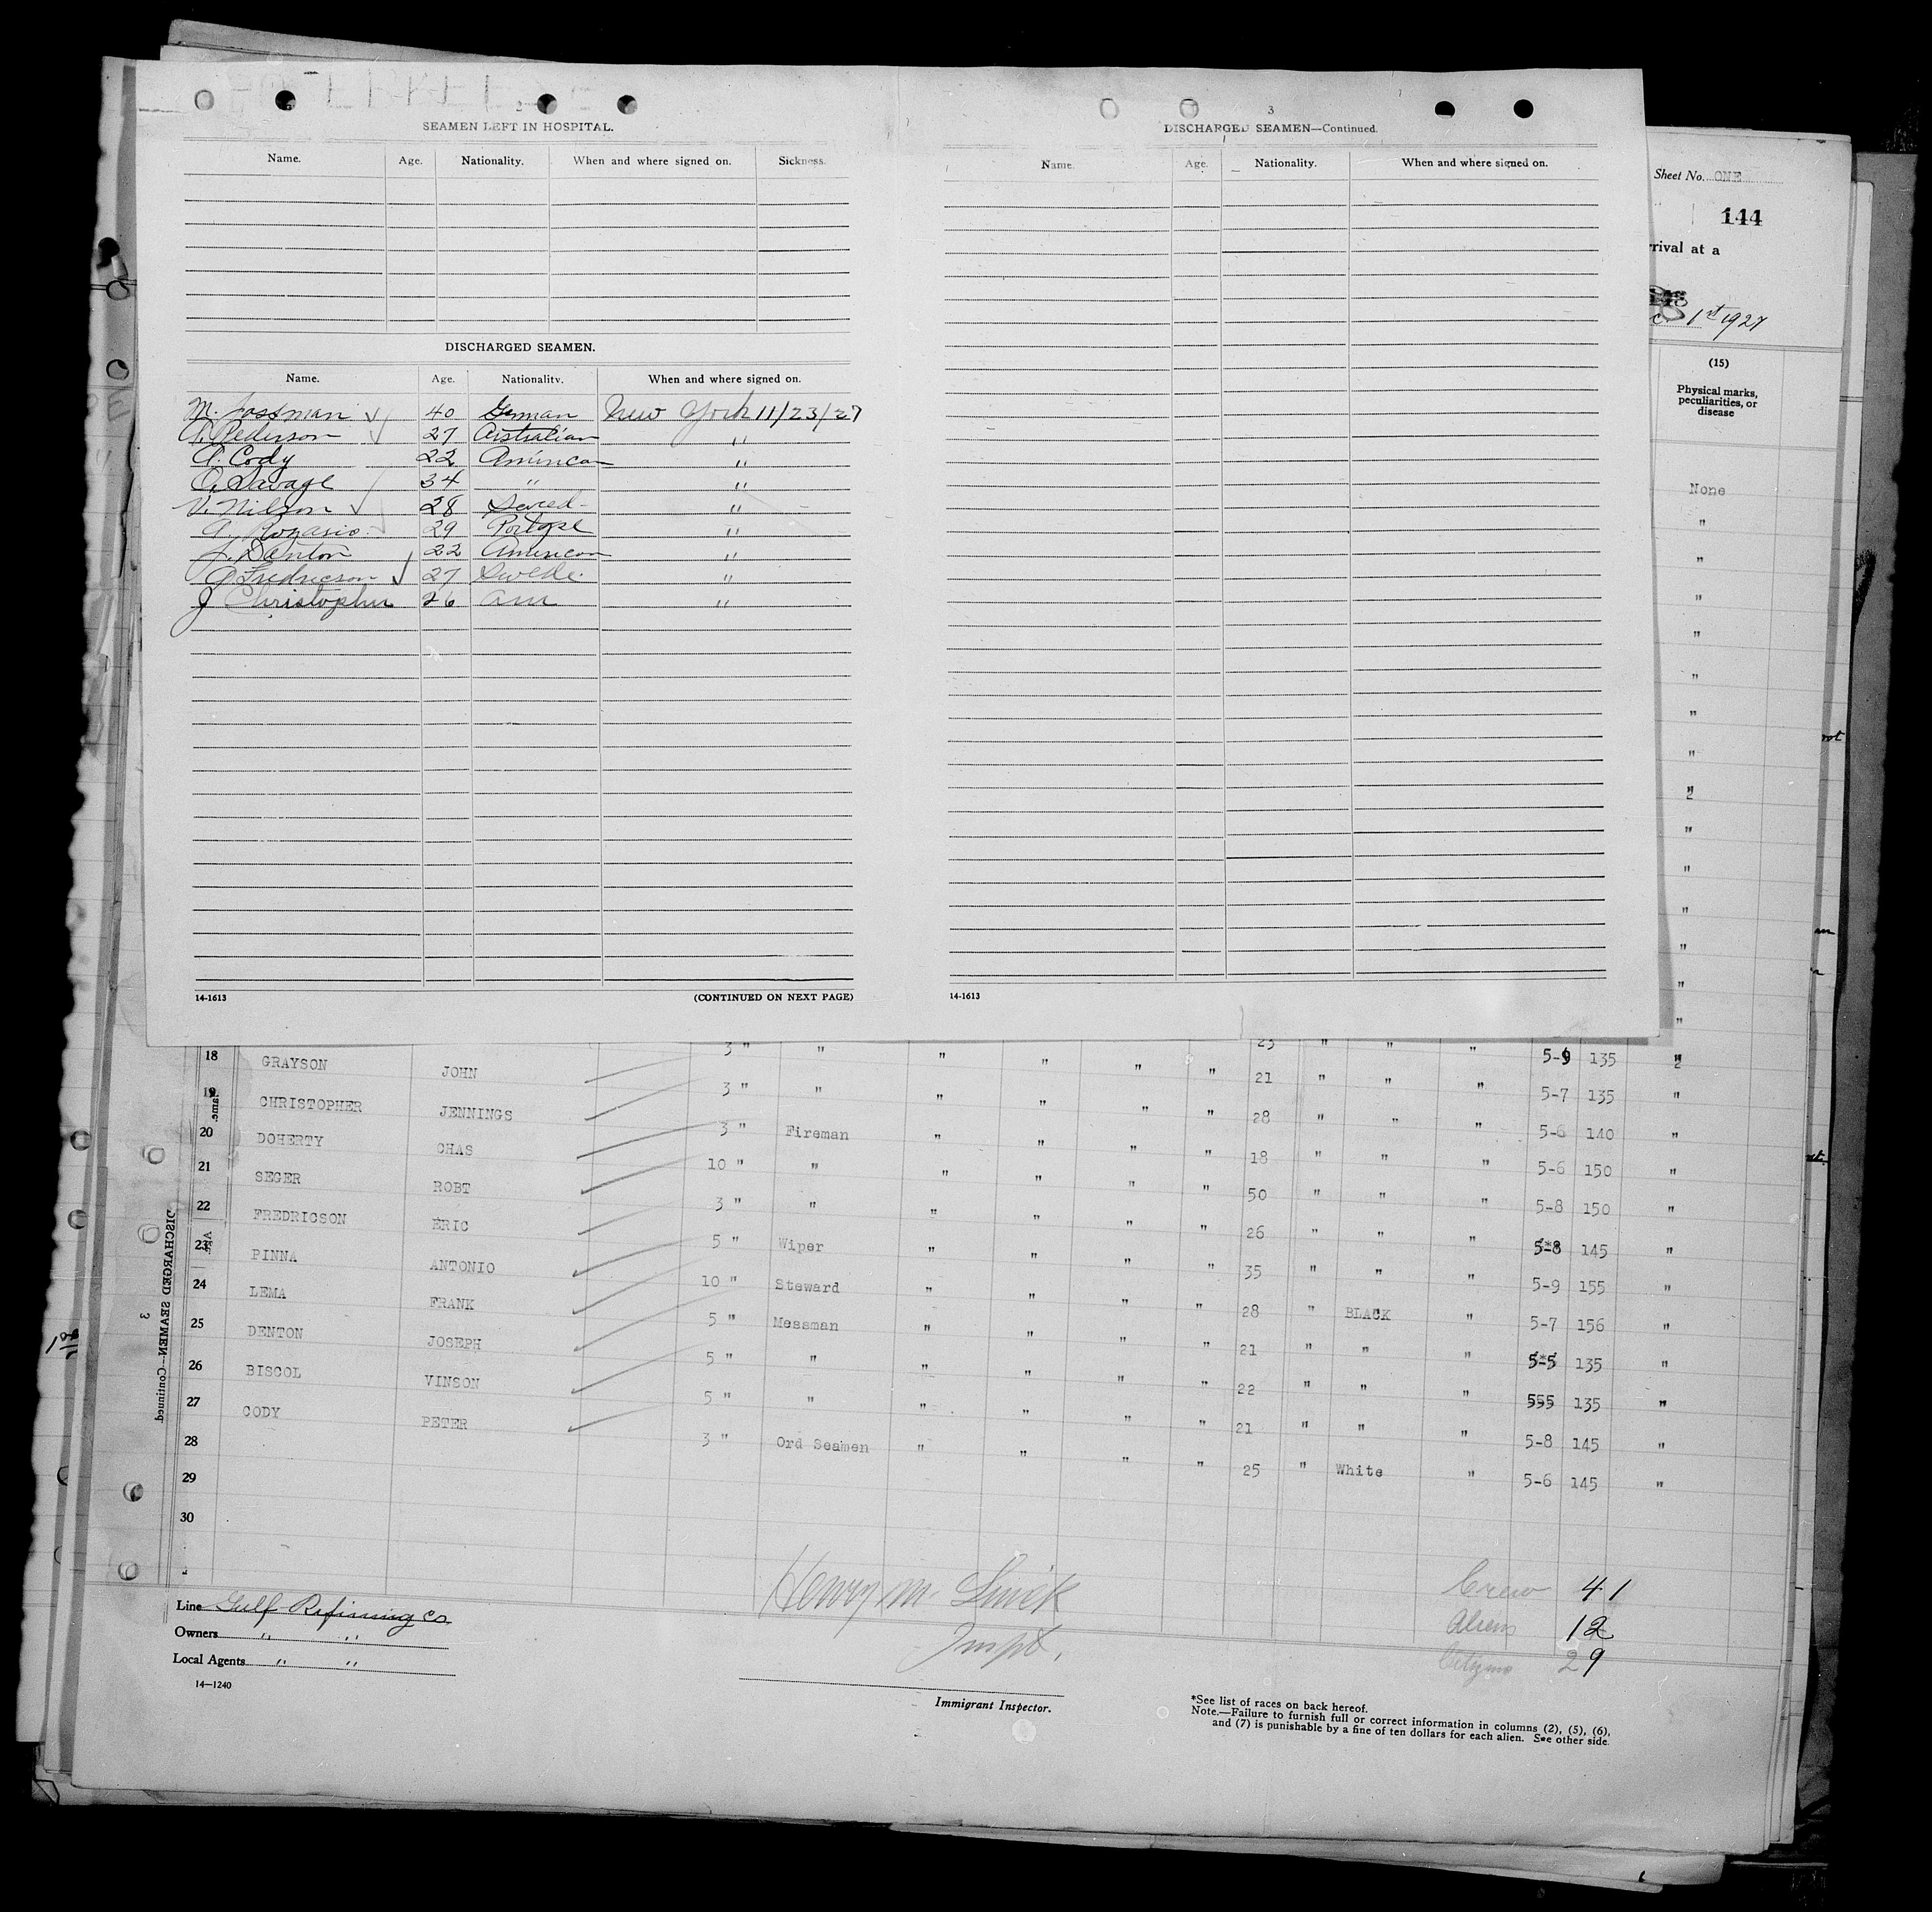 2
SEAMEN LEFT IN HOSPITAL.
Name. Age. Nationality. When and where signed on. Sickness.
DISCHARGED SEAMEN.
Name. Age. Nationality. When and where signed on.
M. Jossman 40 German New York 11/23/27
A. Pederson 27 Australian "
P. Cody 22 American "
O. Savage 34 " "
V. Nilson 28 Swed- "
A. Rozasio 29 Portgse "
J. Denton 22 American "
Fredricson 27 Swede. "
J Christopher 26 Am "
14-1613 (CONTINUED ON NEXT PAGE)
3
DISCHARGED SEAMEN—Continued.
Name. Age. Nationality. When and where signed on.
14-1613
Sheet No. ONE
144
rrival at a
c 1st 1927
(15)
Physical marks, peculiarities, or disease
None
18 GRAYSON JOHN 3 " " " " " " 21 " " " 5-7 135 "
19 CHRISTOPHER JENNINGS 3 " " " " " " 28 " " " 5-6 140 "
20 DOHERTY CHAS 3 " Fireman " " " " 18 " " " 5-6 150 "
21 SEGER ROBT 10 " " " " " " 50 " " " 5-8 150 "
22 FREDRICSON ERIC 3 " " " " " " 26 " " " 5-8 145 "
23 PINNA ANTONIO 5 " Wiper " " " " 35 " " " 5-9 155 "
24 LEMA FRANK 10 " Steward " " " " 28 " BLACK " 5-7 156 "
25 DENTON JOSEPH 5 " Messman " " " " 21 " " " 5-5 135 "
26 BISCOL VINSON 5 " " " " " " 22 " " " 555 135 "
27 CODY PETER 5 " " " " " " 21 " " " 5-8 145 "
28 3 " Ord Seamen " " " " 25 " White " 5-6 145 "
29
30
DISCHARGED SEAMEN—Continued.
3
Henry M. Smick
Inspt.
Immigrant Inspector.
Crew 41
Aliens 12
Citizens 29
Line Gulf Refining Co
Owners " "
Local Agents " "
14—1240
*See list of races on back hereof.
Note.—Failure to furnish full or correct information in columns (2), (5), (6),
and (7) is punishable by a fine of ten dollars for each alien. See other side.